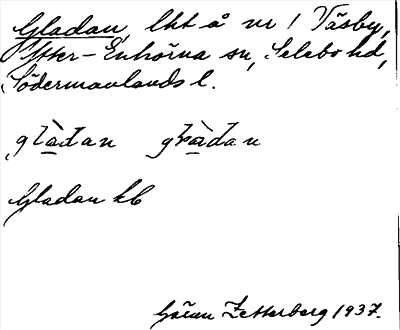 Gladan, lht å nr 1 Väsby,
Ytter-Enhörna sn, Selebo hd,
Södermanlands l.
glàđan gràđan
Gladan kb
Göran Zetterberg 1937.